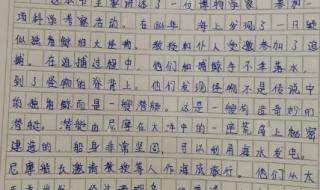 这本书主要讲述了一位博物学家，参加一
项科学考察活动。在1866年，海上发现了一只疑
似独角鲸的大怪物，教授和仆人受邀参加了追
捕。在追捕过程中，他们和捕鲸手不幸落水，
到了怪物的脊背上。他们发现怪物不是传说中
的独角鲸而是一艘潜艇。这是一艘构造奇妙的
潜艇。潜艇由尼摩在大洋中的一座荒岛上秘密
建造的，船身非常坚固，可以利用海水发电。
尼摩船长邀请教授等人作海底旅行。他们从太